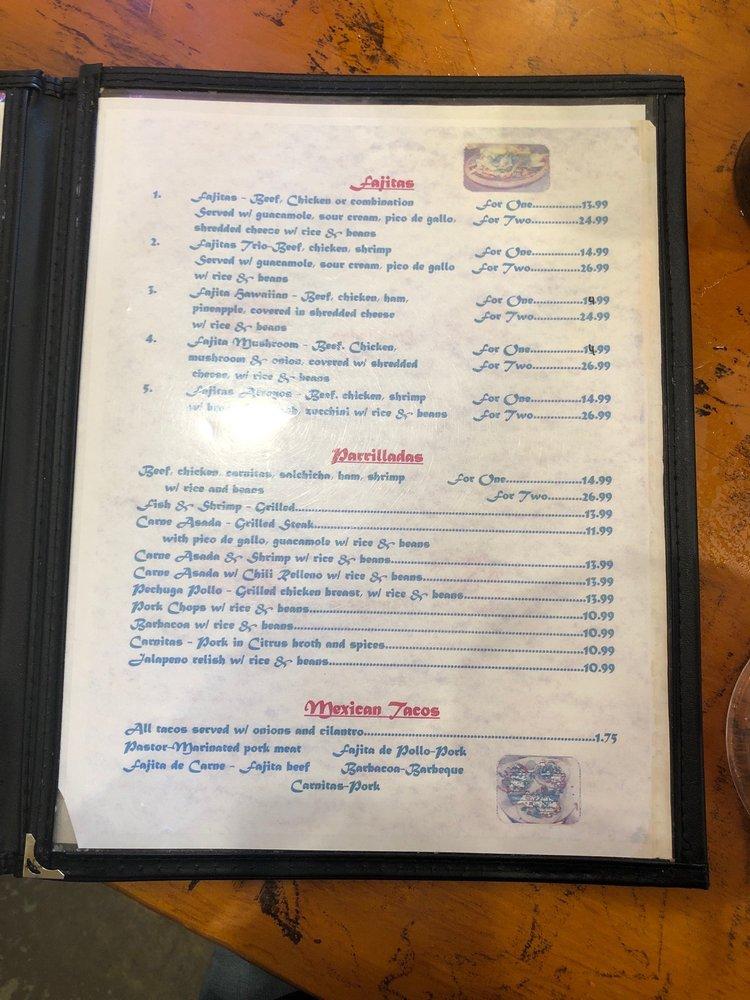 Fajitas
1. Fajitas - Beef, Chicken or combination For One............13.99
Served w/ guacamole, sour cream, pico de gallo, For Two...........24.99
shredded cheese w/ rice & beans
2. Fajitas Trio-Beef, chicken, shrimp For One............14.99
Served w/ guacamole, sour cream, pico de gallo For Two...........26.99
w/ rice & beans
3. Fajita Hawaiian - Beef, chicken, ham, For One............14.99
pineapple, covered in shredded cheese For Two...........24.99
w/ rice & beans
4. Fajita Mushroom - Beef, Chicken, For One............14.99
mushroom & onion, covered w/ shredded For Two...........26.99
cheese, w/ rice & beans
5. Fajitas Arroyos - Beef, chicken, shrimp For One............14.99
w/ zucchini w/ rice & beans For Two...........26.99
Parrilladas
Beef, chicken, carnitas, salchicha, ham, shrimp For One..........................14.99
w/ rice and beans For Two...............26.99
Fish & Shrimp - Grilled..........................................................................13.99
Carne Asada - Grilled Steak....................................................................11.99
with pico de gallo, guacamole w/ rice & beans
Carne Asada & Shrimp w/ rice & beans..................................................13.99
Carne Asada w/ Chili Relleno w/ rice & beans.........................................13.99
Pechuga Pollo - Grilled chicken breast, w/ rice & beans..............................13.99
Pork Chops w/ rice & beans....................................................................10.99
Barbacoa w/ rice & beans........................................................................10.99
Carnitas - Pork in Citrus broth and spices..................................................10.99
Jalapeno relish w/ rice & beans................................................................10.99
Mexican Tacos
All tacos served w/ onions and cilantro..........................................................1.75
Pastor-Marinated pork meat Fajita de Pollo-Pork
Fajita de Carne - Fajita beef Barbacoa-Barbeque
Carnitas-Pork